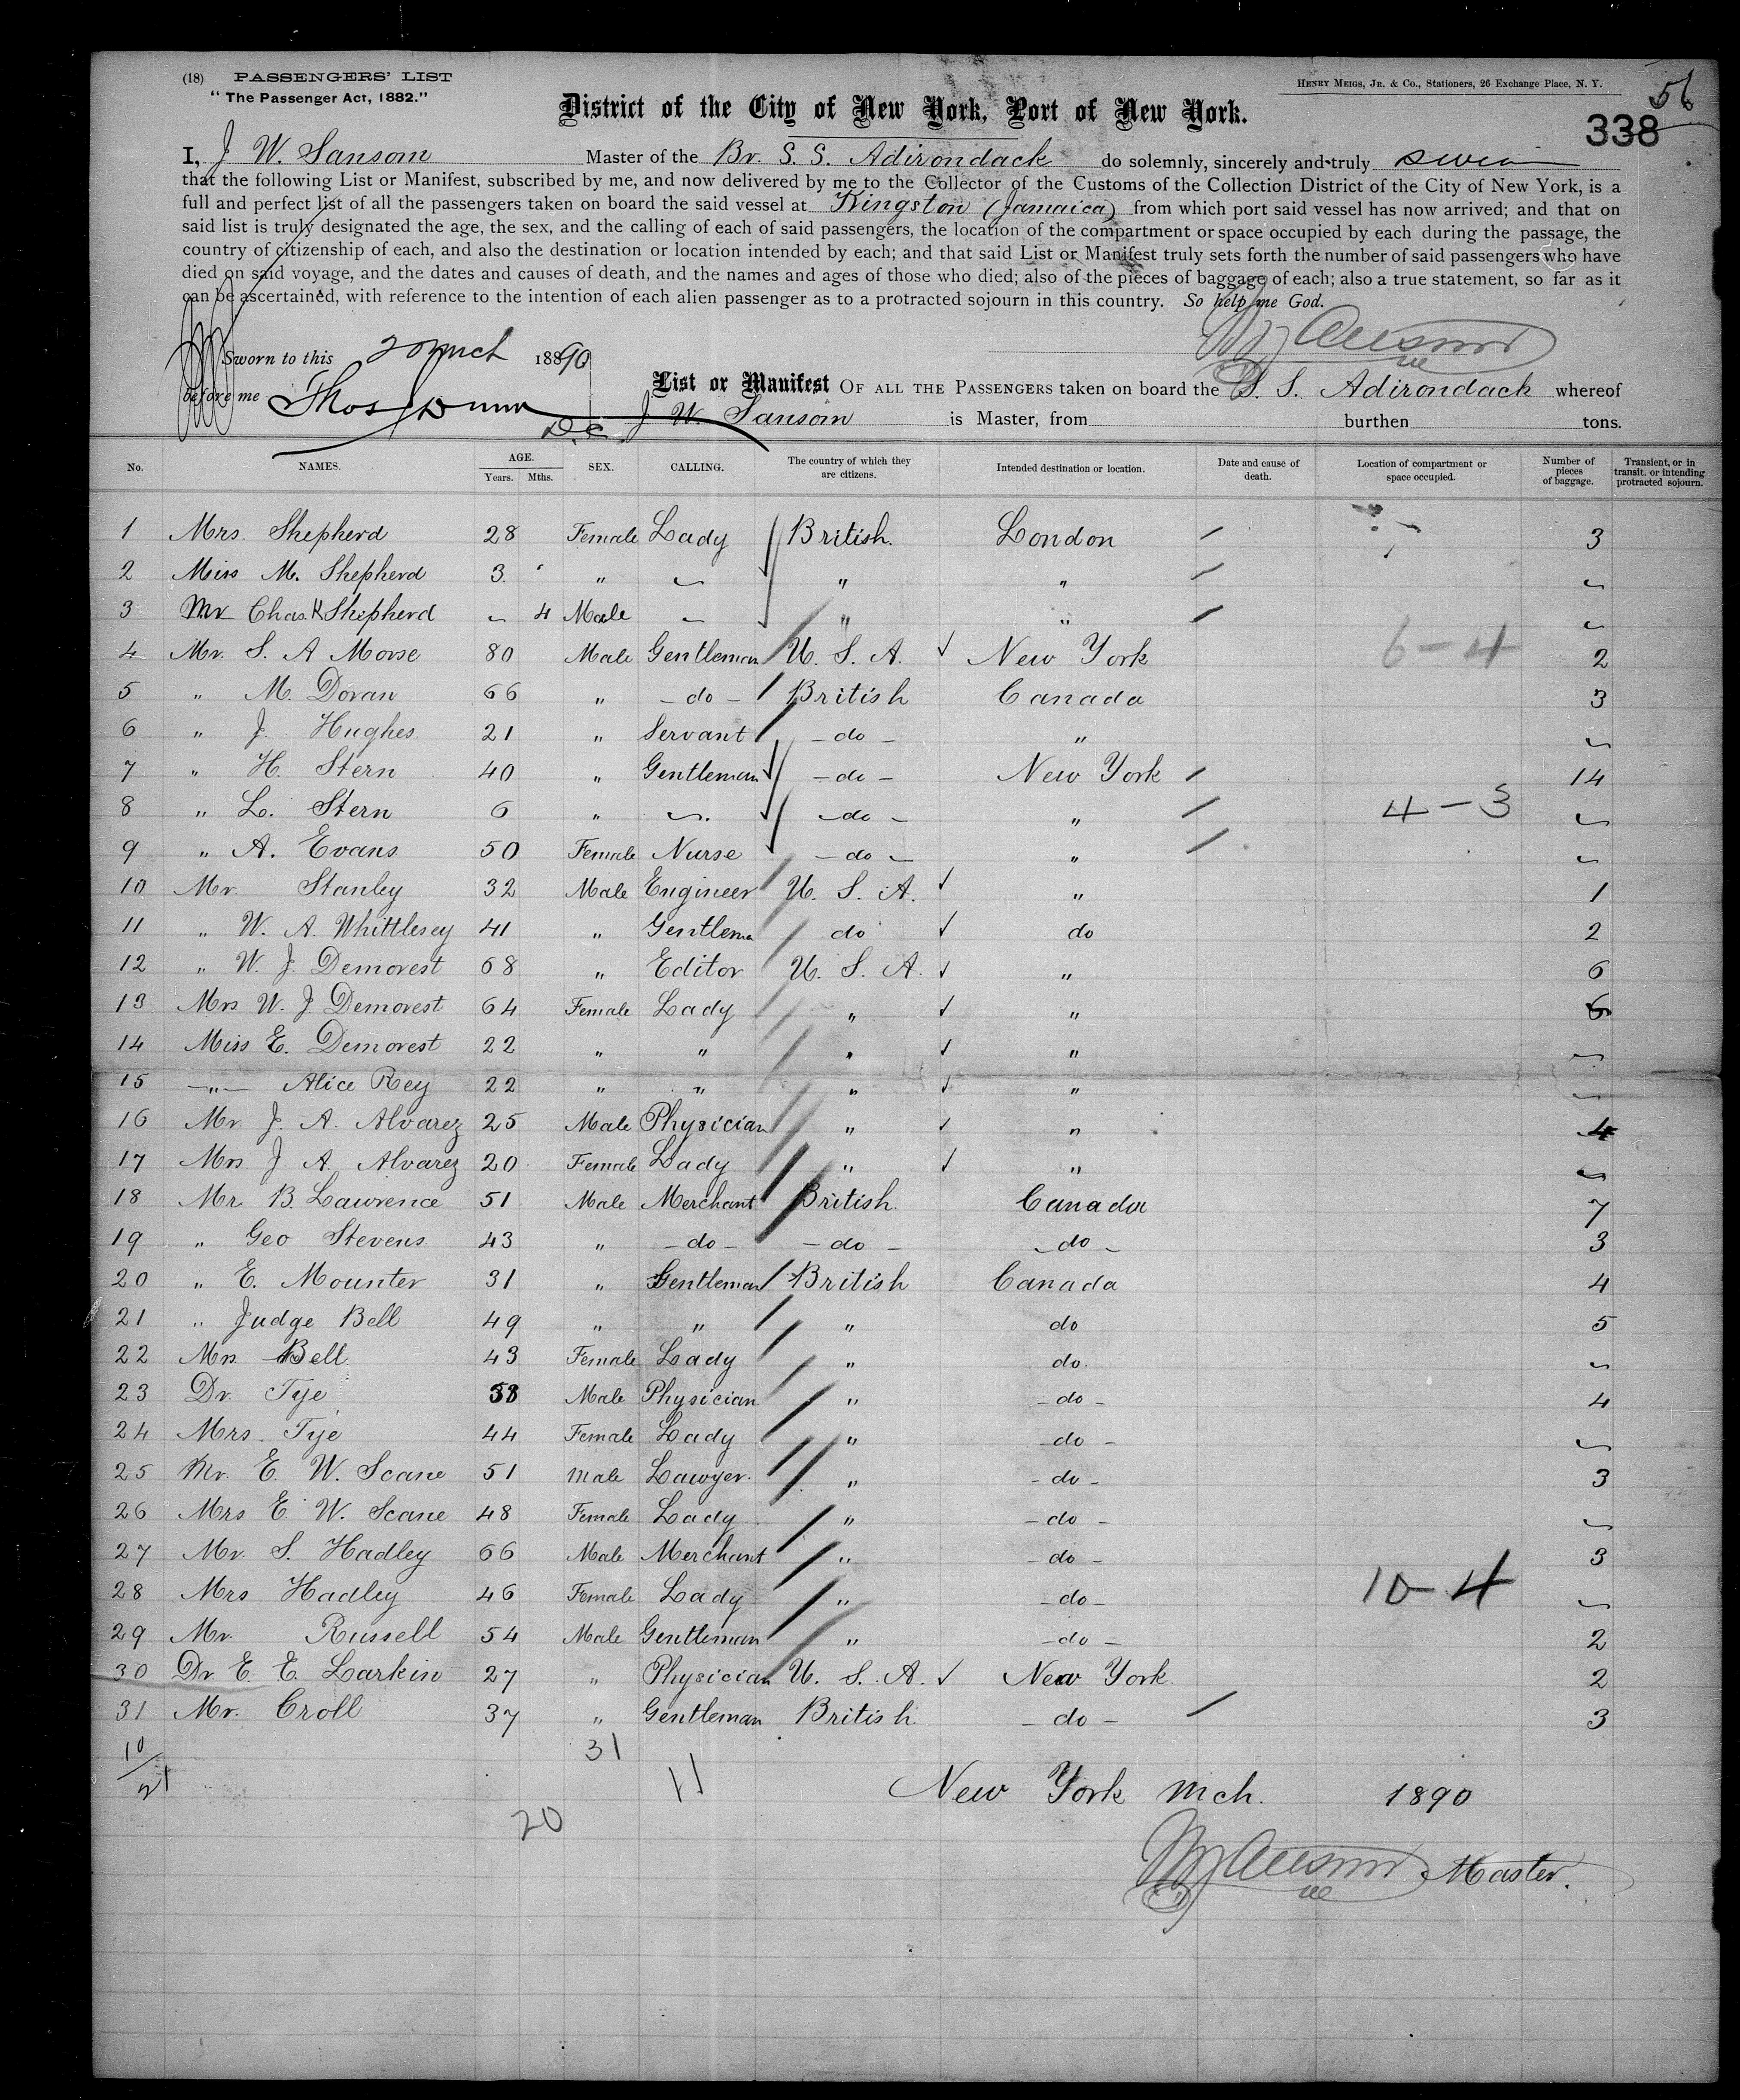 (18) PASSENGERS' LIST
"The Passenger Act, 1882."
HENRY MEIGS, JR. & CO., Stationers, 26 Exchange Place, N. Y.
56
338
District of the City of New York, Port of New York.
I, J W. Sansom Master of the Br. S. S. Adirondack do solemnly, sincerely and truly swear
that the following List or Manifest, subscribed by me, and now delivered by me to the Collector of the Customs of the Collection District of the City of New York, is a
full and perfect list of all the passengers taken on board the said vessel at Kingston (Jamaica) from which port said vessel has now arrived; and that on
said list is truly designated the age, the sex, and the calling of each of said passengers, the location of the compartment or space occupied by each during the passage, the
country of citizenship of each, and also the destination or location intended by each; and that said List or Manifest truly sets forth the number of said passengers who have
died on said voyage, and the dates and causes of death, and the names and ages of those who died; also of the pieces of baggage of each; also a true statement, so far as it
can be ascertained, with reference to the intention of each alien passenger as to a protracted sojourn in this country. So help me God.
Sworn to this 20 Mch 1890
before me Thos Dunn
D.C.
List or Manifest OF ALL THE PASSENGERS taken on board the S. S. Adirondack whereof
J W. Sansom is Master, from burthen tons.
No. NAMES. AGE. Years. Mths. SEX. CALLING. The country of which they are citizens. Intended destination or location. Date and cause of death. Location of compartment or space occupied. Number of pieces of baggage. Transient, or in transit, or intending protracted sojourn.
1 Mrs. Shepherd 28 Female Lady British. London 3
2 Miss M. Shepherd 3 " " "
3 Mr Chas. H Shepherd 4 Male " "
4 Mr. S. A Morse 80 Male Gentleman U. S. A. New York 6-4 2
5 " M. Doran 66 " -do- British Canada 3
6 " J. Hughes 21 " Servant -do- "
7 " H. Stern 40 " Gentleman -do- New York 14
8 " L. Stern 6 " -do- " 4-3
9 " A. Evans 50 Female Nurse -do- "
10 Mr. Stanley 32 Male Engineer U. S. A. " 1
11 " W. A. Whittlesey 41 " Gentlema do do 2
12 " W. J. Demorest 68 " Editor U. S. A. " 6
13 Mrs W. J Demorest 64 Female Lady " " 6
14 Miss E. Demorest 22 " " " "
15 -"- Alice Rey 22 " " " "
16 Mr J. A. Alvarez 25 Male Physician " " 4
17 Mrs J A. Alvarez 20 Female Lady " "
18 Mr B. Lawrence 51 Male Merchant British. Canada 7
19 " Geo Stevens 43 " -do- -do- -do- 3
20 " E. Mounter 31 " Gentleman British Canada 4
21 " Judge Bell 49 " " " do 5
22 Mrs Bell 43 Female Lady " do.
23 Dr. Tye 38 Male Physician " -do- 4
24 Mrs. Tye 44 Female Lady " -do-
25 Mr. E. W. Scane 51 Male Lawyer. " -do- 3
26 Mrs E. W. Scane 48 Female Lady " -do-
27 Mr. S. Hadley 66 Male Merchant " -do- 3
28 Mrs Hadley 46 Female Lady " -do- 10-4
29 Mr. Russell 54 Male Gentleman " -do- 2
30 Dr. E. E. Larkin 27 " Physician U. S. A. New York 2
31 Mr. Croll 37 " Gentleman British. -do- 3
10/21 31 11
20
New York Mch. 1890
Master.